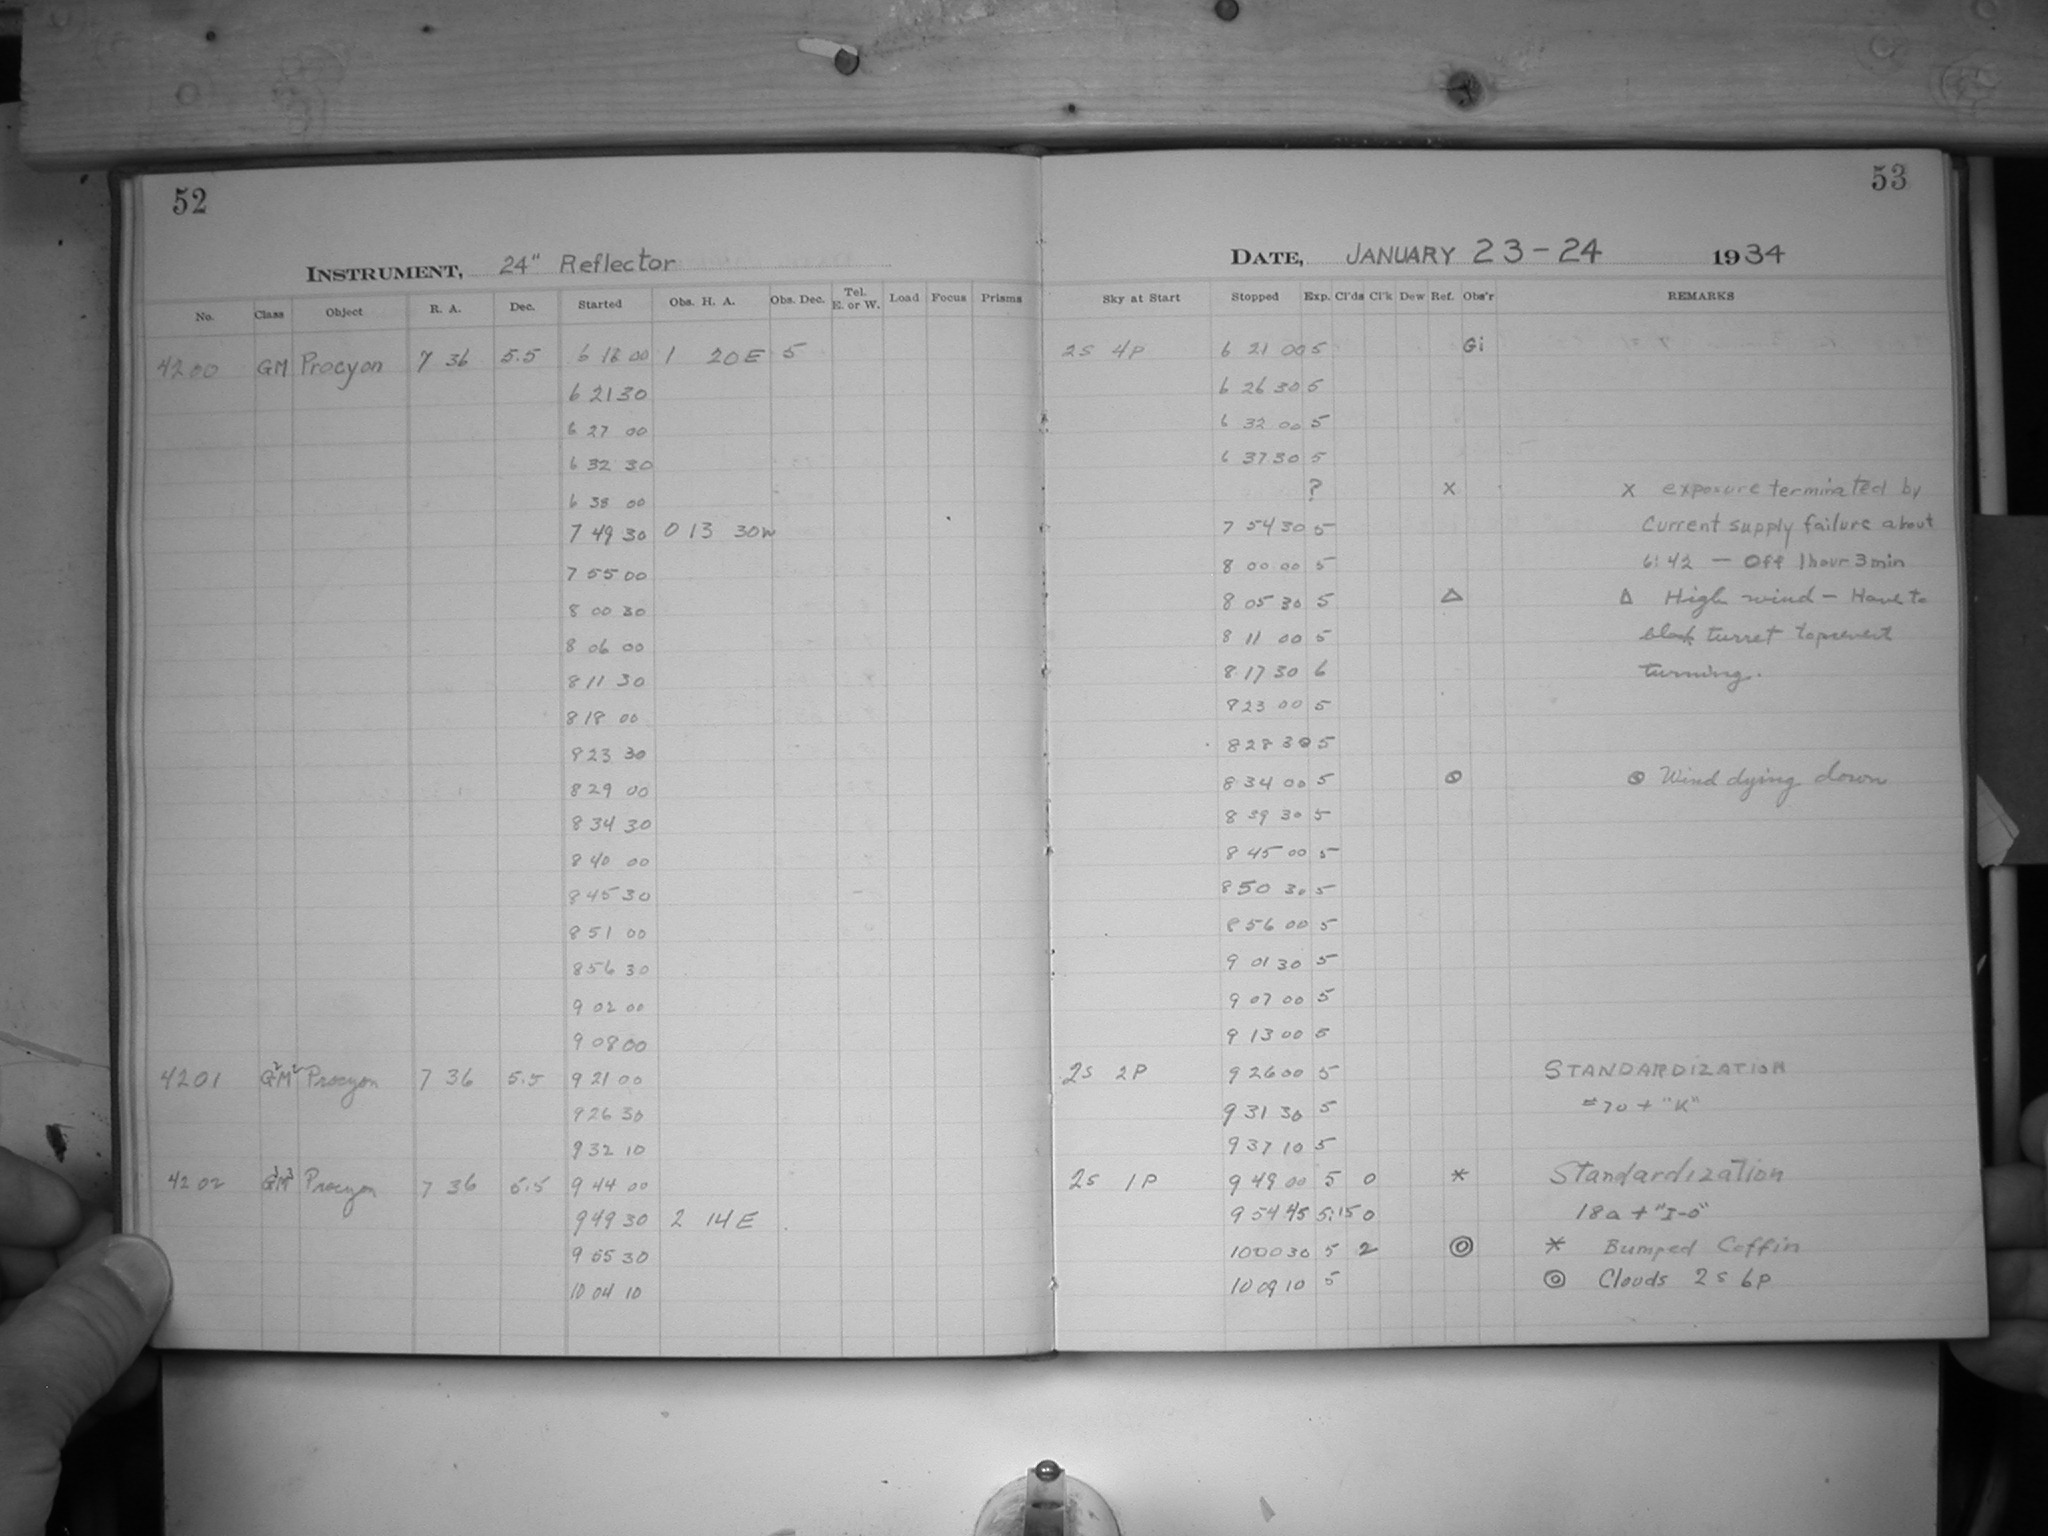 52
INSTRUMENT, 24" Reflector
No. Class Object R. A. Dec. Started Obs. H. A. Obs. Dec. Tel. E. or W. Load Focus Prisms
4200 GM Procyon 7 36 5.5 6 16 00 1 20 E 5
6 21 30
6 27 00
6 32 30
6 38 00
7 49 30 0 13 30 W
7 55 00
8 00 30
8 06 00
8 11 30
8 18 00
8 23 30
8 29 00
8 34 30
8 40 00
8 45 30
8 51 00
8 56 30
9 02 00
9 08 00
4201 G²M² Procyon 7 36 5.5 9 21 00
9 26 30
9 32 10
4202 G³M³ Procyon 7 36 5.5 9 44 00
9 49 30 2 14 E
9 55 30
10 04 10
53
DATE, JANUARY 23-24 1934
Sky at Start Stopped Exp. Cl'ds Cl'k Dew Ref. Obs'r REMARKS
2s 4P 6 21 00 5 Gi
6 26 30 5
6 32 00 5
6 37 30 5
? x x exposure terminated by
7 54 30 5 Current supply failure about
8 00 00 5 6:42 — Off 1 hour 3 min
8 05 30 5 Δ Δ High wind — Have to
8 11 00 5 block turret to prevent
8 17 30 6 turning.
8 23 00 5
8 28 30 5
8 34 00 5 ⊙ ⊙ Wind dying down
8 39 30 5
8 45 00 5
8 50 30 5
8 56 00 5
9 01 30 5
9 07 00 5
9 13 00 5
2s 2P 9 26 00 5 STANDARDIZATION
9 31 30 5 #70 + "K"
9 37 10 5
2s 1P 9 49 00 5 0 * Standardization
9 54 45 5:15 0 18a + "I-0"
10 00 30 5 2 ◎ * Bumped Coffin
10 09 10 5 ◎ Clouds 2s 6p